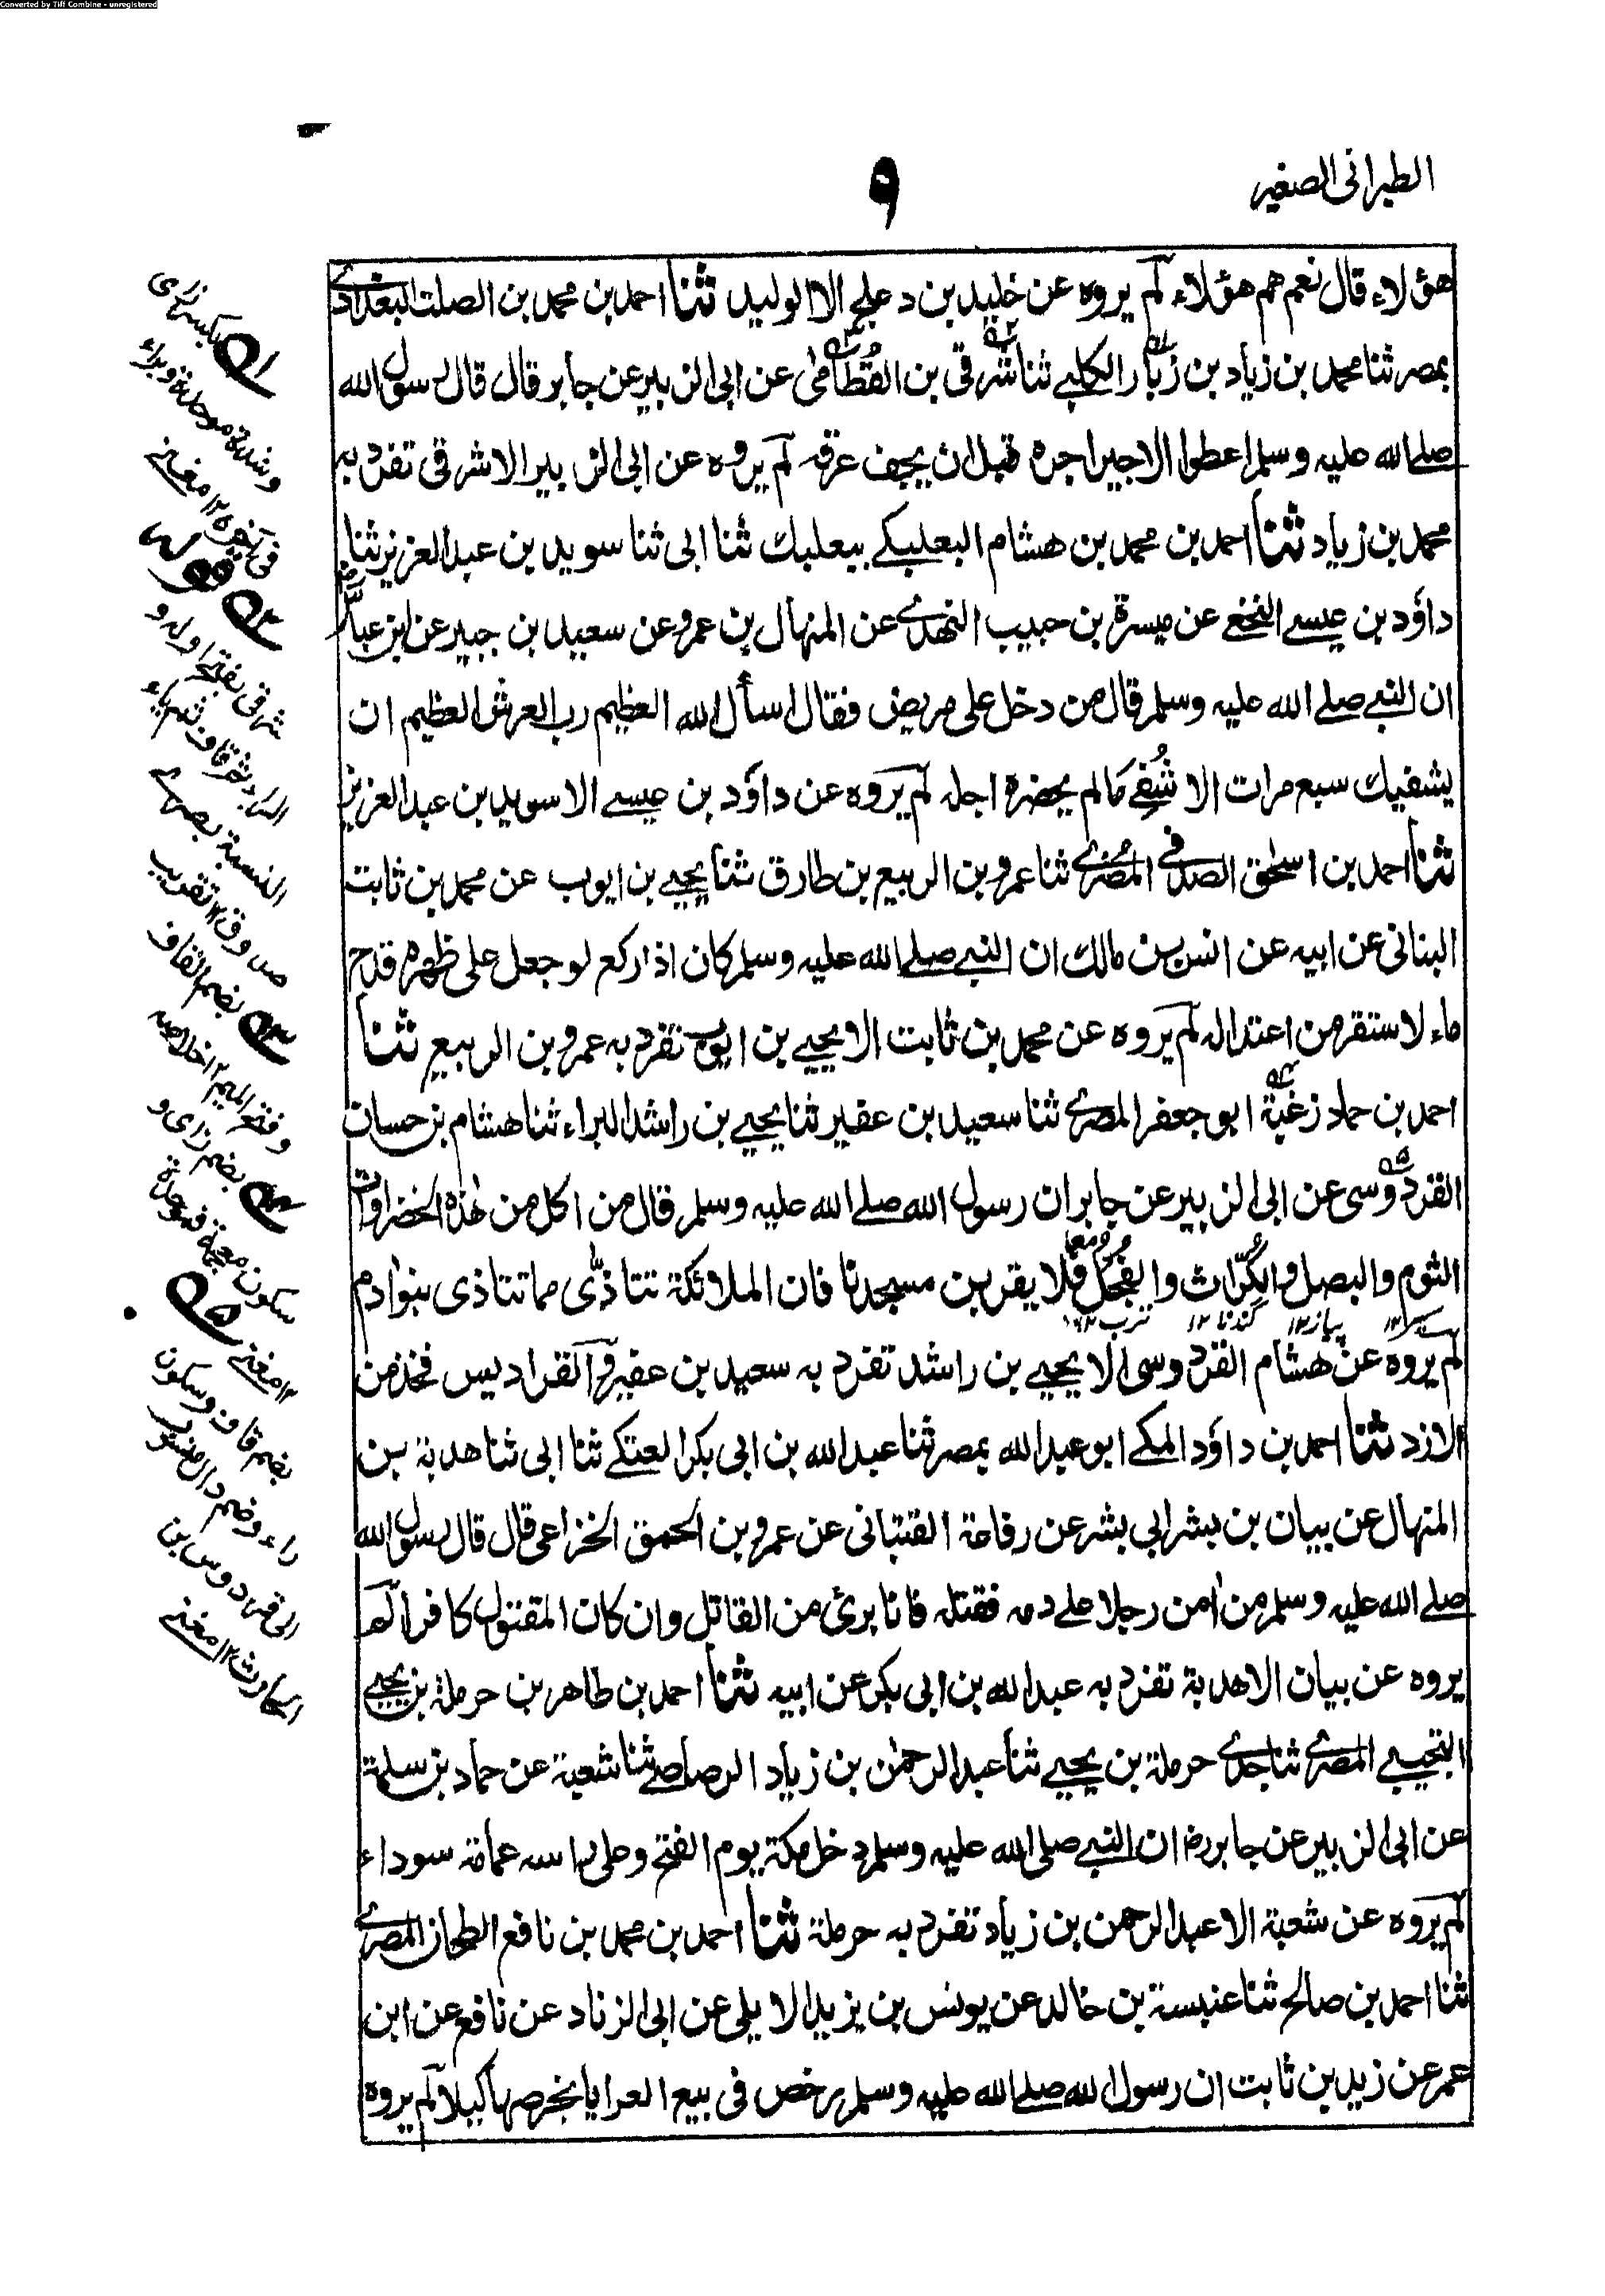 Converted by Tiff Combine - unregistered
الطبرانى الصغير
٩
هؤلاء قال نعم هم هؤلاء لم يروه عن خليد بن دعلج الا الوليد ثنا احمد بن محمد بن الصلت البغدادى
بمصر ثنا محمد بن زياد بن زبار الكلبى ثنا شرقى بن القطامى عن ابى الزبير عن جابر قال قال رسول الله
صلى الله عليه وسلم اعطوا الاجير اجره قبل ان يجف عرقه لم يروه عن ابى الزبير الا شرقى تفرد به
محمد بن زياد ثنا احمد بن محمد بن هشام البعلبكى ببعلبك ثنا ابى ثنا سويد بن عبد العزيز ثنا
داؤد بن عيسى النخعى عن ميسرة بن حبيب النهدى عن المنهال بن عمرو عن سعيد بن جبير عن ابن عباس رض
ان النبى صلى الله عليه وسلم قال من دخل على مريض فقال اسأل الله العظيم رب العرش العظيم ان
يشفيك سبع مرات الا شُفِى مالم يحضره اجله لم يروه عن داؤد بن عيسى الا سويد بن عبد العزيز
ثنا احمد بن اسحٰق الصدفى المصرى ثنا عمرو بن الربيع بن طارق ثنا يحيى بن ايوب عن محمد بن ثابت
البنانى عن ابيه عن انس بن مالك ان النبى صلى الله عليه وسلم كان اذا ركع لو جعل على ظهره قدح
ماء لاستقر من اعتداله لم يروه عن محمد بن ثابت الا يحيى بن ايوب تفرد به عمرو بن الربيع ثنا
احمد بن حماد زغبة ابو جعفر المصرى ثنا سعيد بن عفير ثنا يحيى بن راشد البراء ثنا هشام بن حسان
القردوسى عن ابى الزبير عن جابر ان رسول الله صلى الله عليه وسلم قال من اكل من هٰذه الخضراوات
الثوم والبصل والكُرّاث والفُجل فلا يقربن مسجدنا فان الملائكة تتاذّى مما تتاذى بنوادم
پياز١٢ گندنا ١٢ ترب ١٢
لم يروه عن هشام القردوسى الا يحيى بن راشد تفرد به سعيد بن عفير والقراديس فخذ من
الازد ثنا احمد بن داؤد المكى ابو عبد الله بمصر ثنا عبد الله بن ابى بكر العتكى ثنا ابى ثنا هدبة بن
المنهال عن بيان بن بشر ابى بشر عن رفاعة القتبانى عن عمرو بن الحمق الخزاعى قال قال رسول الله
صلى الله عليه وسلم من اٰمن رجلا على دمه فقتله فانا برئ من القاتل وان كان المقتول كافرا لم
يروه عن بيان الا هدبة تفرد به عبد الله بن ابى بكر عن ابيه ثنا احمد بن طاهر بن حرملة بن يحيى
التجيبى المصرى ثنا جدى حرملة بن يحيى ثنا عبد الرحمٰن بن زياد الرصاصى ثنا شعبة عن حماد بن سلمة
عن ابى الزبير عن جابر رض ان النبى صلى الله عليه وسلم دخل مكة يوم الفتح وعلى راسه عمامة سوداء
لم يروه عن شعبة الا عبد الرحمن بن زياد تفرد به حرملة ثنا احمد بن محمد بن نافع الطحان المصرى
ثنا احمد بن صالح ثنا عنبسة بن خالد عن يونس بن يزيد الايلى عن ابى الزناد عن نافع عن ابن
عمر عن زيد بن ثابت ان رسول الله صلى الله عليه وسلم رخص فى بيع العرايا بخرصها كيلا لم يروه
١ه بكسر زاى
وشدة موحدة وبراء
فى آخره ١٢ مغنى
٢ه قوله
شرقى بفتح اوله و
الراء ثم قاف ثم ياء
النسبة بصرى
صدوق ١٢ تقريب
٣ه بضم القاف
وفتح الميم ١٢ خلاصه
٤ه بضم زاى و
سكون معجمة فموحدة
١٢ مغنى ٥ه
بضم قاف وسكون
راء وضم دال منسوب
الى قردوس بن
الحارث ١٢ المغنى